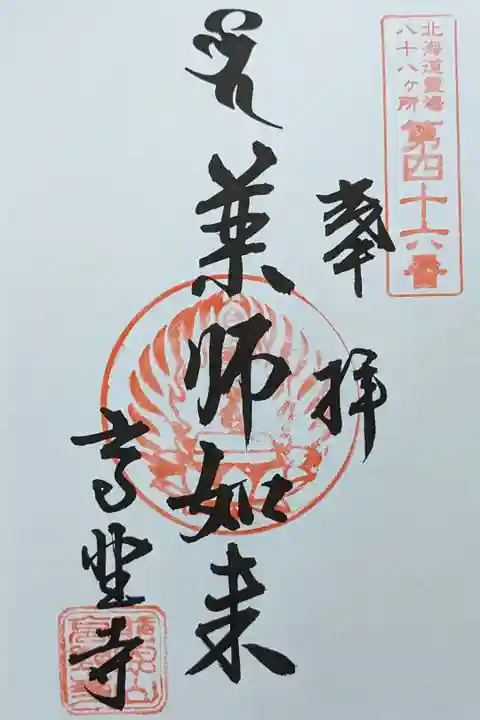 北海道霊場
八十八ヶ所
第四十六番
奉拝
薬師如来
高野寺